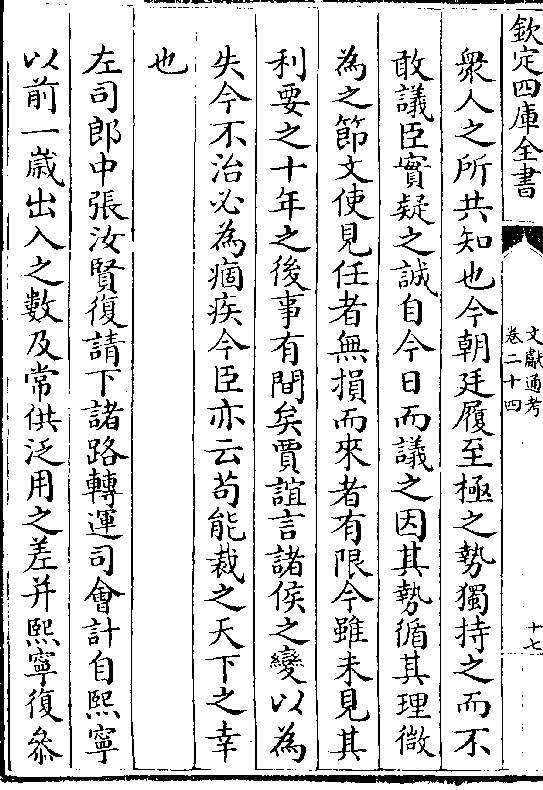 欽定四庫全書
文獻通考
卷二十四
十七
衆人之所共知也今朝廷履至極之勢獨持之而不
敢議臣實疑之誠自今日而議之因其勢循其理微
為之節文使見任者無損而來者有限今雖未見其
利要之十年之後事有間矣賈誼言諸侯之變以為
失今不治必為痼疾今臣亦云苟能裁之天下之幸
也
左司郎中張汝賢復請下諸路轉運司會計自熙寧
以前一嵗出入之數及常供泛用之差并熙寧復參